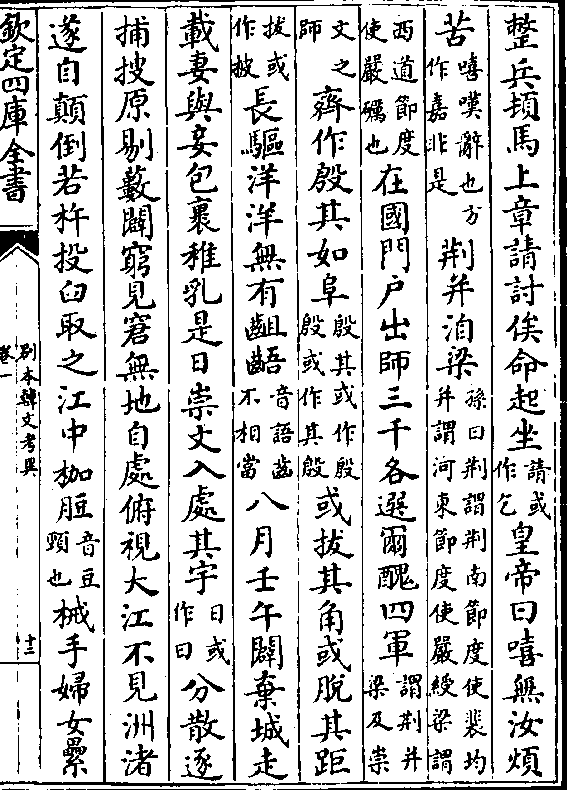 整兵頓馬上章請討俟命起坐請或作乞皇帝曰嘻無汝煩
苦嘻嘆辭也方作嘉非是荆并洎梁孫曰荆謂荆南節度使裴均并謂河東節度使嚴綬梁謂
西道節度使嚴礪也在國門户出師三千各選爾醜四軍謂荆并梁及崇
文之師齊作殷其如阜殷其或作殷殷或作其殷或拔其角或脱其距
拔或作披長驅洋洋無有齟齬音語齒不相當八月壬午闢棄城走
載妻與妾包裹稚乳是日崇文入處其宇日或作曰分散逐
捕搜原剔藪闢窮見窘無地自處俯視大江不見洲渚
遂自顛倒若杵投臼取之江中枷脰音豆頸也械手婦女纍
欽定四庫全書
别本韓文考異
卷一
十三